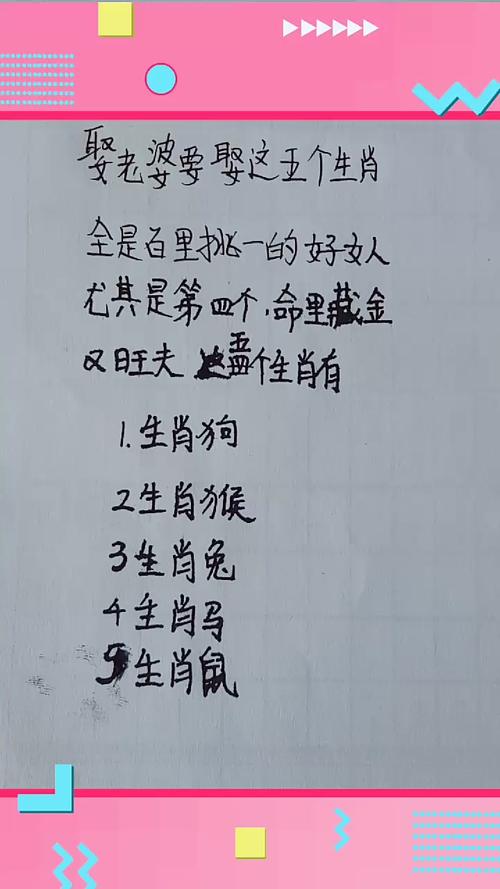 娶老婆要娶这五个生肖
全是百里挑一的好女人
尤其是第四个,命里藏金
又旺夫 这五个生肖有
1.生肖狗
2生肖猴
3生肖兔
4生肖马
5生肖鼠